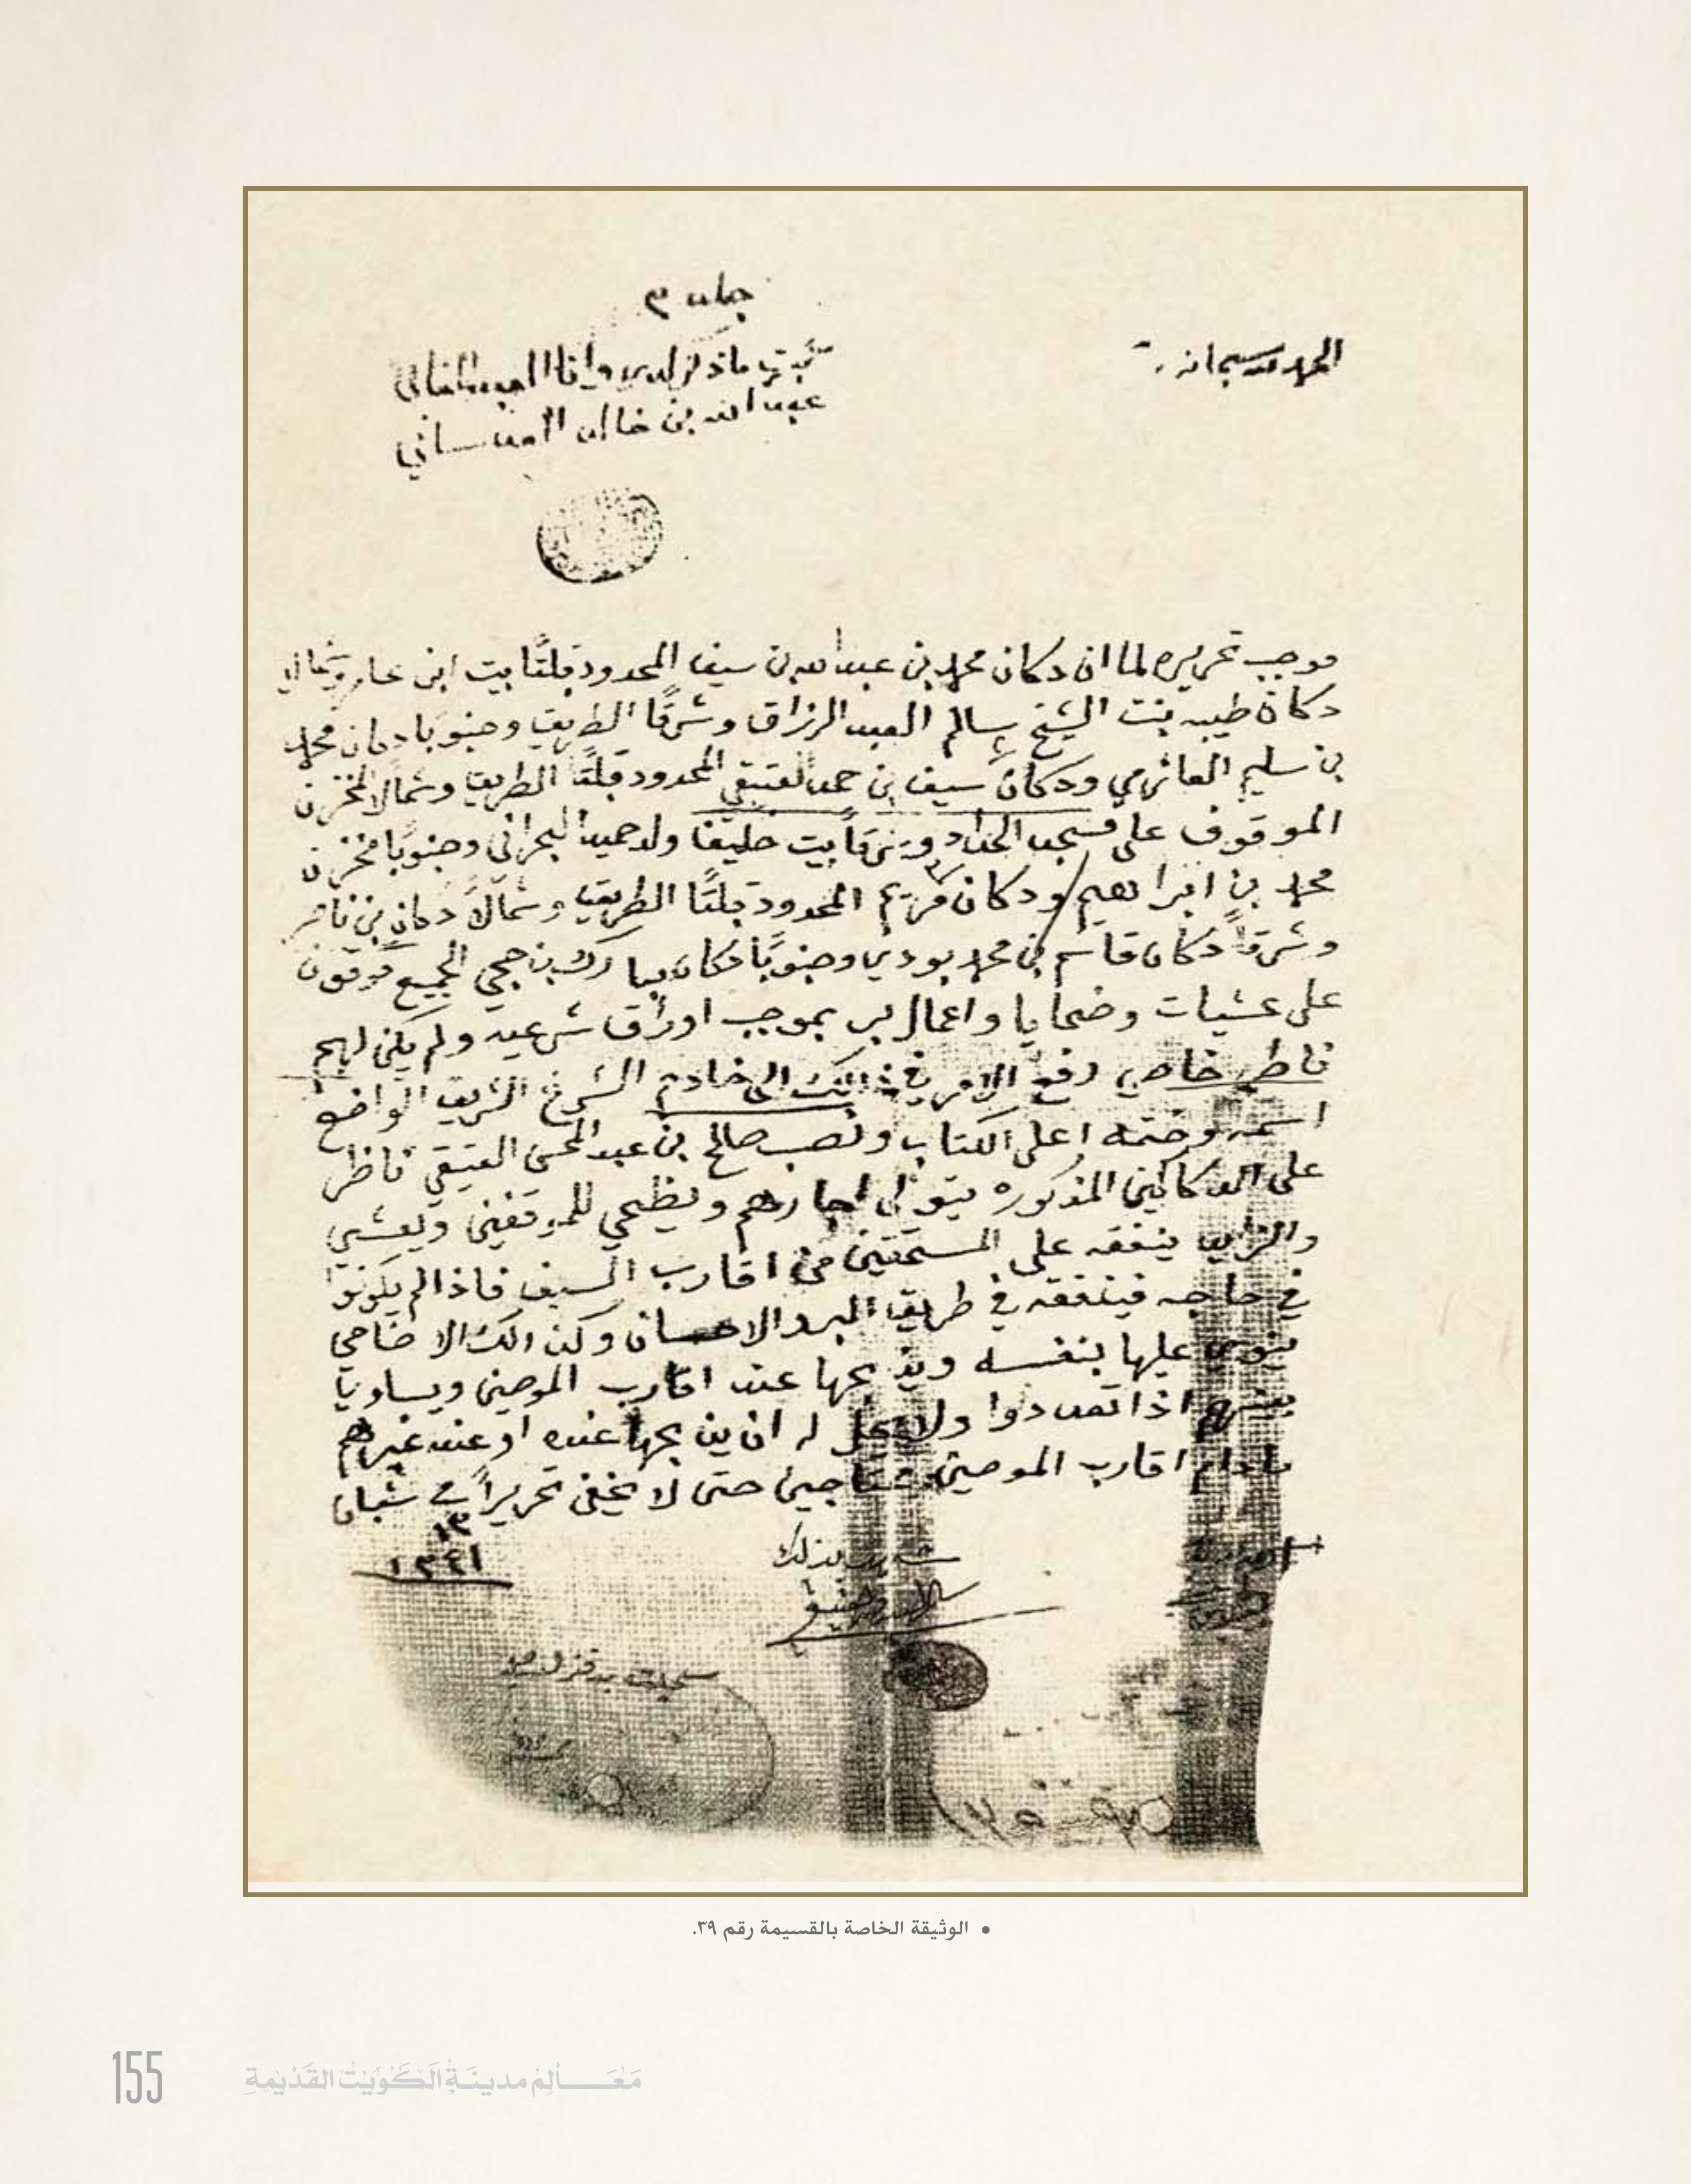 الحمد لله سبحانه
ثبت ما ذكر لدي وانا العبد الفاني
عبد الله بن خالد العدساني
موجب تحريره لما ان دكان محمد بن عبدالله بن سيف المحدود قبلتًا بيت ابن عامر وشمالا
دكان طيبه بنت الشيخ سالم العبد الرزاق وشرقًا الطريق وجنوبًا دكان محمد
بن سليم العازمي ودكان سيف بن حمد العتيقي المحدود قبلتًا الطريق وشمالا المخزن
الموقوف على مسجد الحداد وشرقًا بيت خليفة ولد حميد البحراني وجنوبًا مخزن
محمد بن ابراهيم ودكان مريم المحدود قبلتًا الطريق وشمالًا دكان بن ناصر
وشرقًا دكان قاسم بن محمد بودي وجنوبًا دكان مبارك بن حجي الجميع موقوف
على عشيات وضحايا واعمال بر بموجب اوراق شرعيه ولم يكن لهم
ناظر خاص رفع الامر في ذلك الى خادم الشرع الشريف الواضع
اسمه وختمه اعلى الكتاب ونصب صالح بن عبد المحسن العتيقي ناظر
على الدكاكين المذكوره يتولى اجارهم ويظحي للموقفين ويعشي
والزايد ينفقه على المستحقين من اقارب السيف فاذا لم يكونوا
في حاجه فينفقه في طريق البر والاحسان وكذالك الاضاحي
ينوي عليها بنفسه ويذبحها عند اقارب الموصين ويساويا
بينهم اذا تعددوا ولا يحل له ان يذبحها عنده او عند غيرهم
مادام اقارب الموصين محتاجين حتى لا يخفى تحريرًا في شعبان
١٣
١٣٤١
شهد بذلك
سجلت
• الوثيقة الخاصة بالقسيمة رقم ٣٩.
155
مَعَــالِم مدينَة الكُوَيت القَدِيمَة